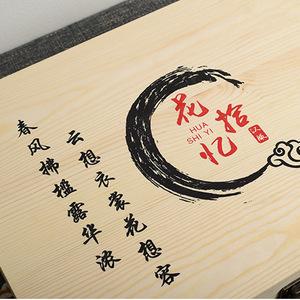 花拾忆
HUA
SHI YI
云想衣裳花想容
春风拂槛露华浓